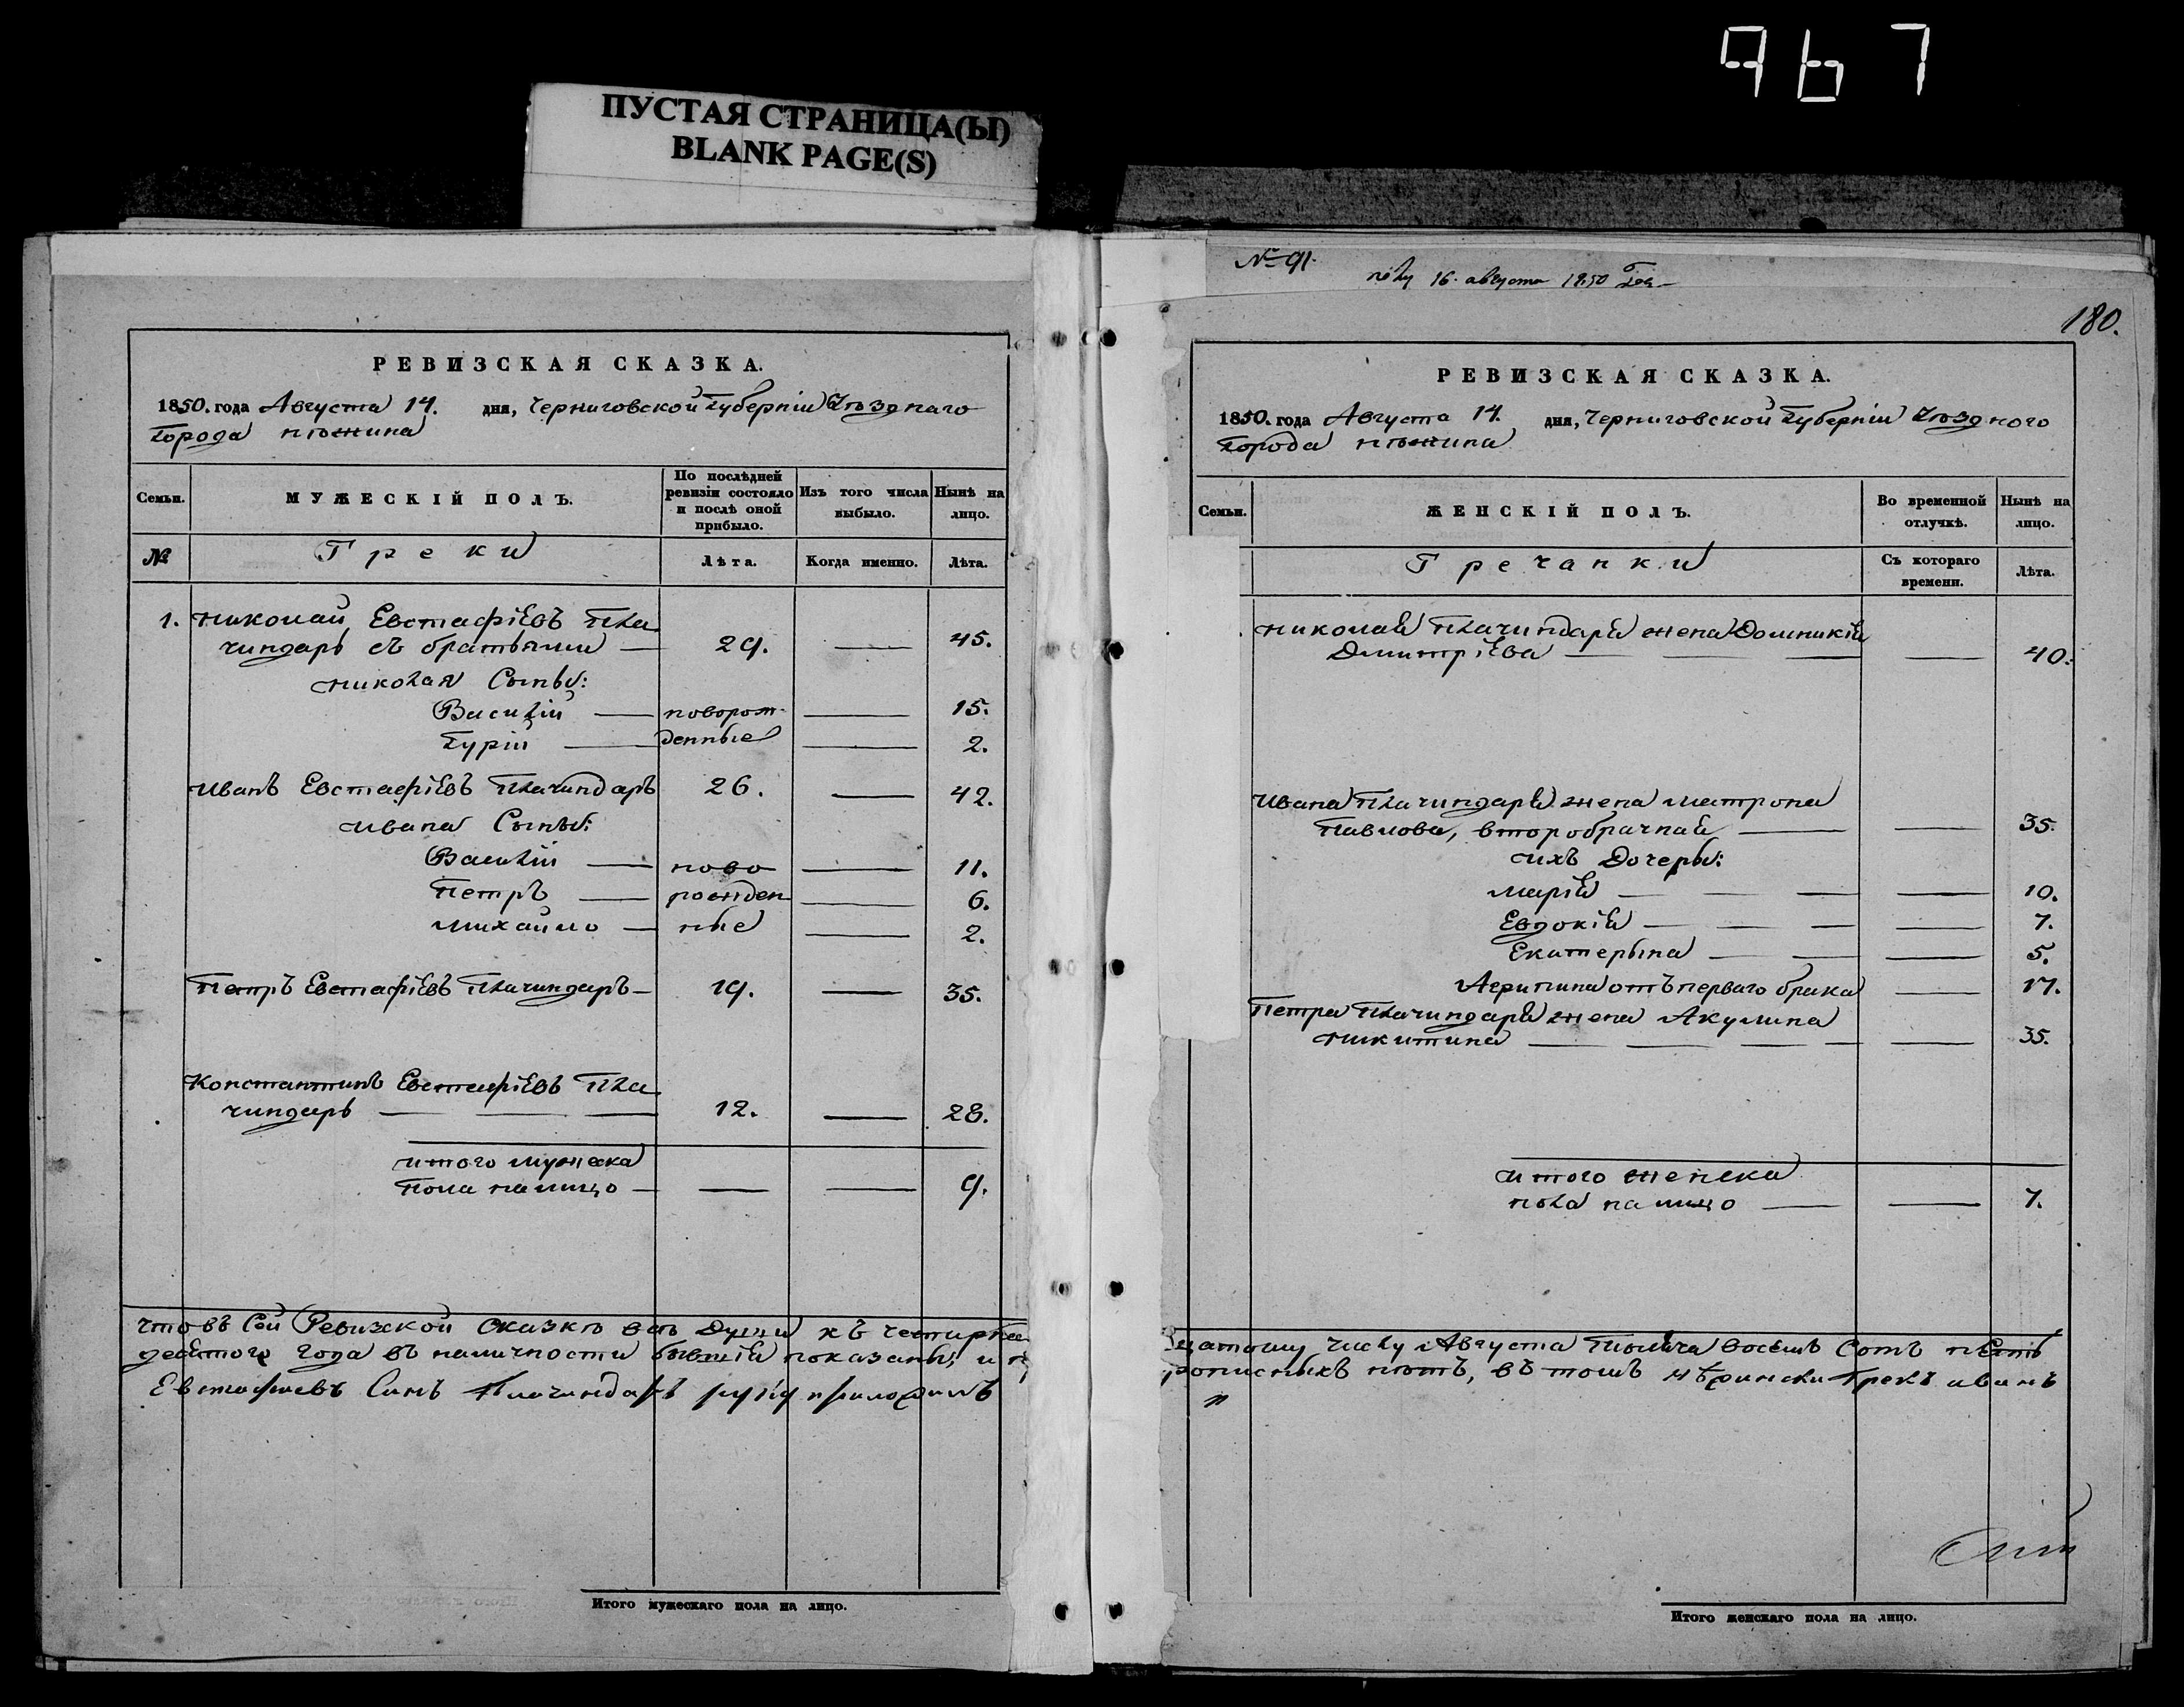 967
ПУСТАЯ СТРАНИЦА(Ы)
BLANK PAGE(S)
РЕВИЗСКАЯ СКАЗКА.
1850. года Августа 14. дня, Черниговской Губерніи Уѣзднаго
Города Нѣжина
Семьи.
МУЖЕСКІЙ ПОЛЪ.
По послѣдней ревизіи состояло и послѣ оной прибыло.
Изъ того числа выбыло.
Нынѣ на лицо.
№
Греки
Лѣта.
Когда именно.
Лѣта.
1. Николай Евстафіевъ Пла
чиндарь съ братьями — 29. — 45.
Николая Сыны:
Василій — новорож- — 15.
Гурій — денные — 2.
Иванъ Евстафіевъ Плачиндарь 26. — 42.
Ивана Сыны:
Василій — ново — 11.
Петръ — рожден — 6.
Михайло — ные — 2.
Петръ Евстафіевъ Плачиндарь — 19. — 35.
Константинъ Евстафіевъ Пла
чиндарь — 12. — 28.
Итого мужеска
пола налицо — — — 9.
Что въ Сей Ревизской Сказкѣ всѣ Души къ четырна
десятого года въ наличности бывшія показаны, и
Евстафиевъ Синъ Плачиндарь руку приложилъ
Итого мужескаго пола на лицо.
№ 91.
16. августа 1850
180.
РЕВИЗСКАЯ СКАЗКА.
1850. года Августа 14. дня, Черниговской Губерніи Уѣздного
Города Нѣжина
Семьи.
ЖЕНСКІЙ ПОЛЪ.
Во временной отлучкѣ.
Нынѣ на лицо.
Гречанки
Съ котораго времени.
Лѣта.
Николая Плачиндаря жена Домникія
Дмитріева — — — — 40.
Ивана Плачиндаря жена Матрона
Павлова, второбрачная — — 35.
Ихъ Дочеры:
Марія — — — — 10.
Евдокія — — — — 7.
Екатерына — — — 5.
Агрипина отъ перваго брака — 17.
Петра Плачиндаря жена Акулина
Никитина — — — — — 35.
Итого женска
пола налицо — — 7.
цатому числу Августа Тысяча восемъ Сотъ пять
рописныхъ нѣтъ, въ томъ Нѣжински Грекъ Иванъ
Итого женскаго пола на лицо.